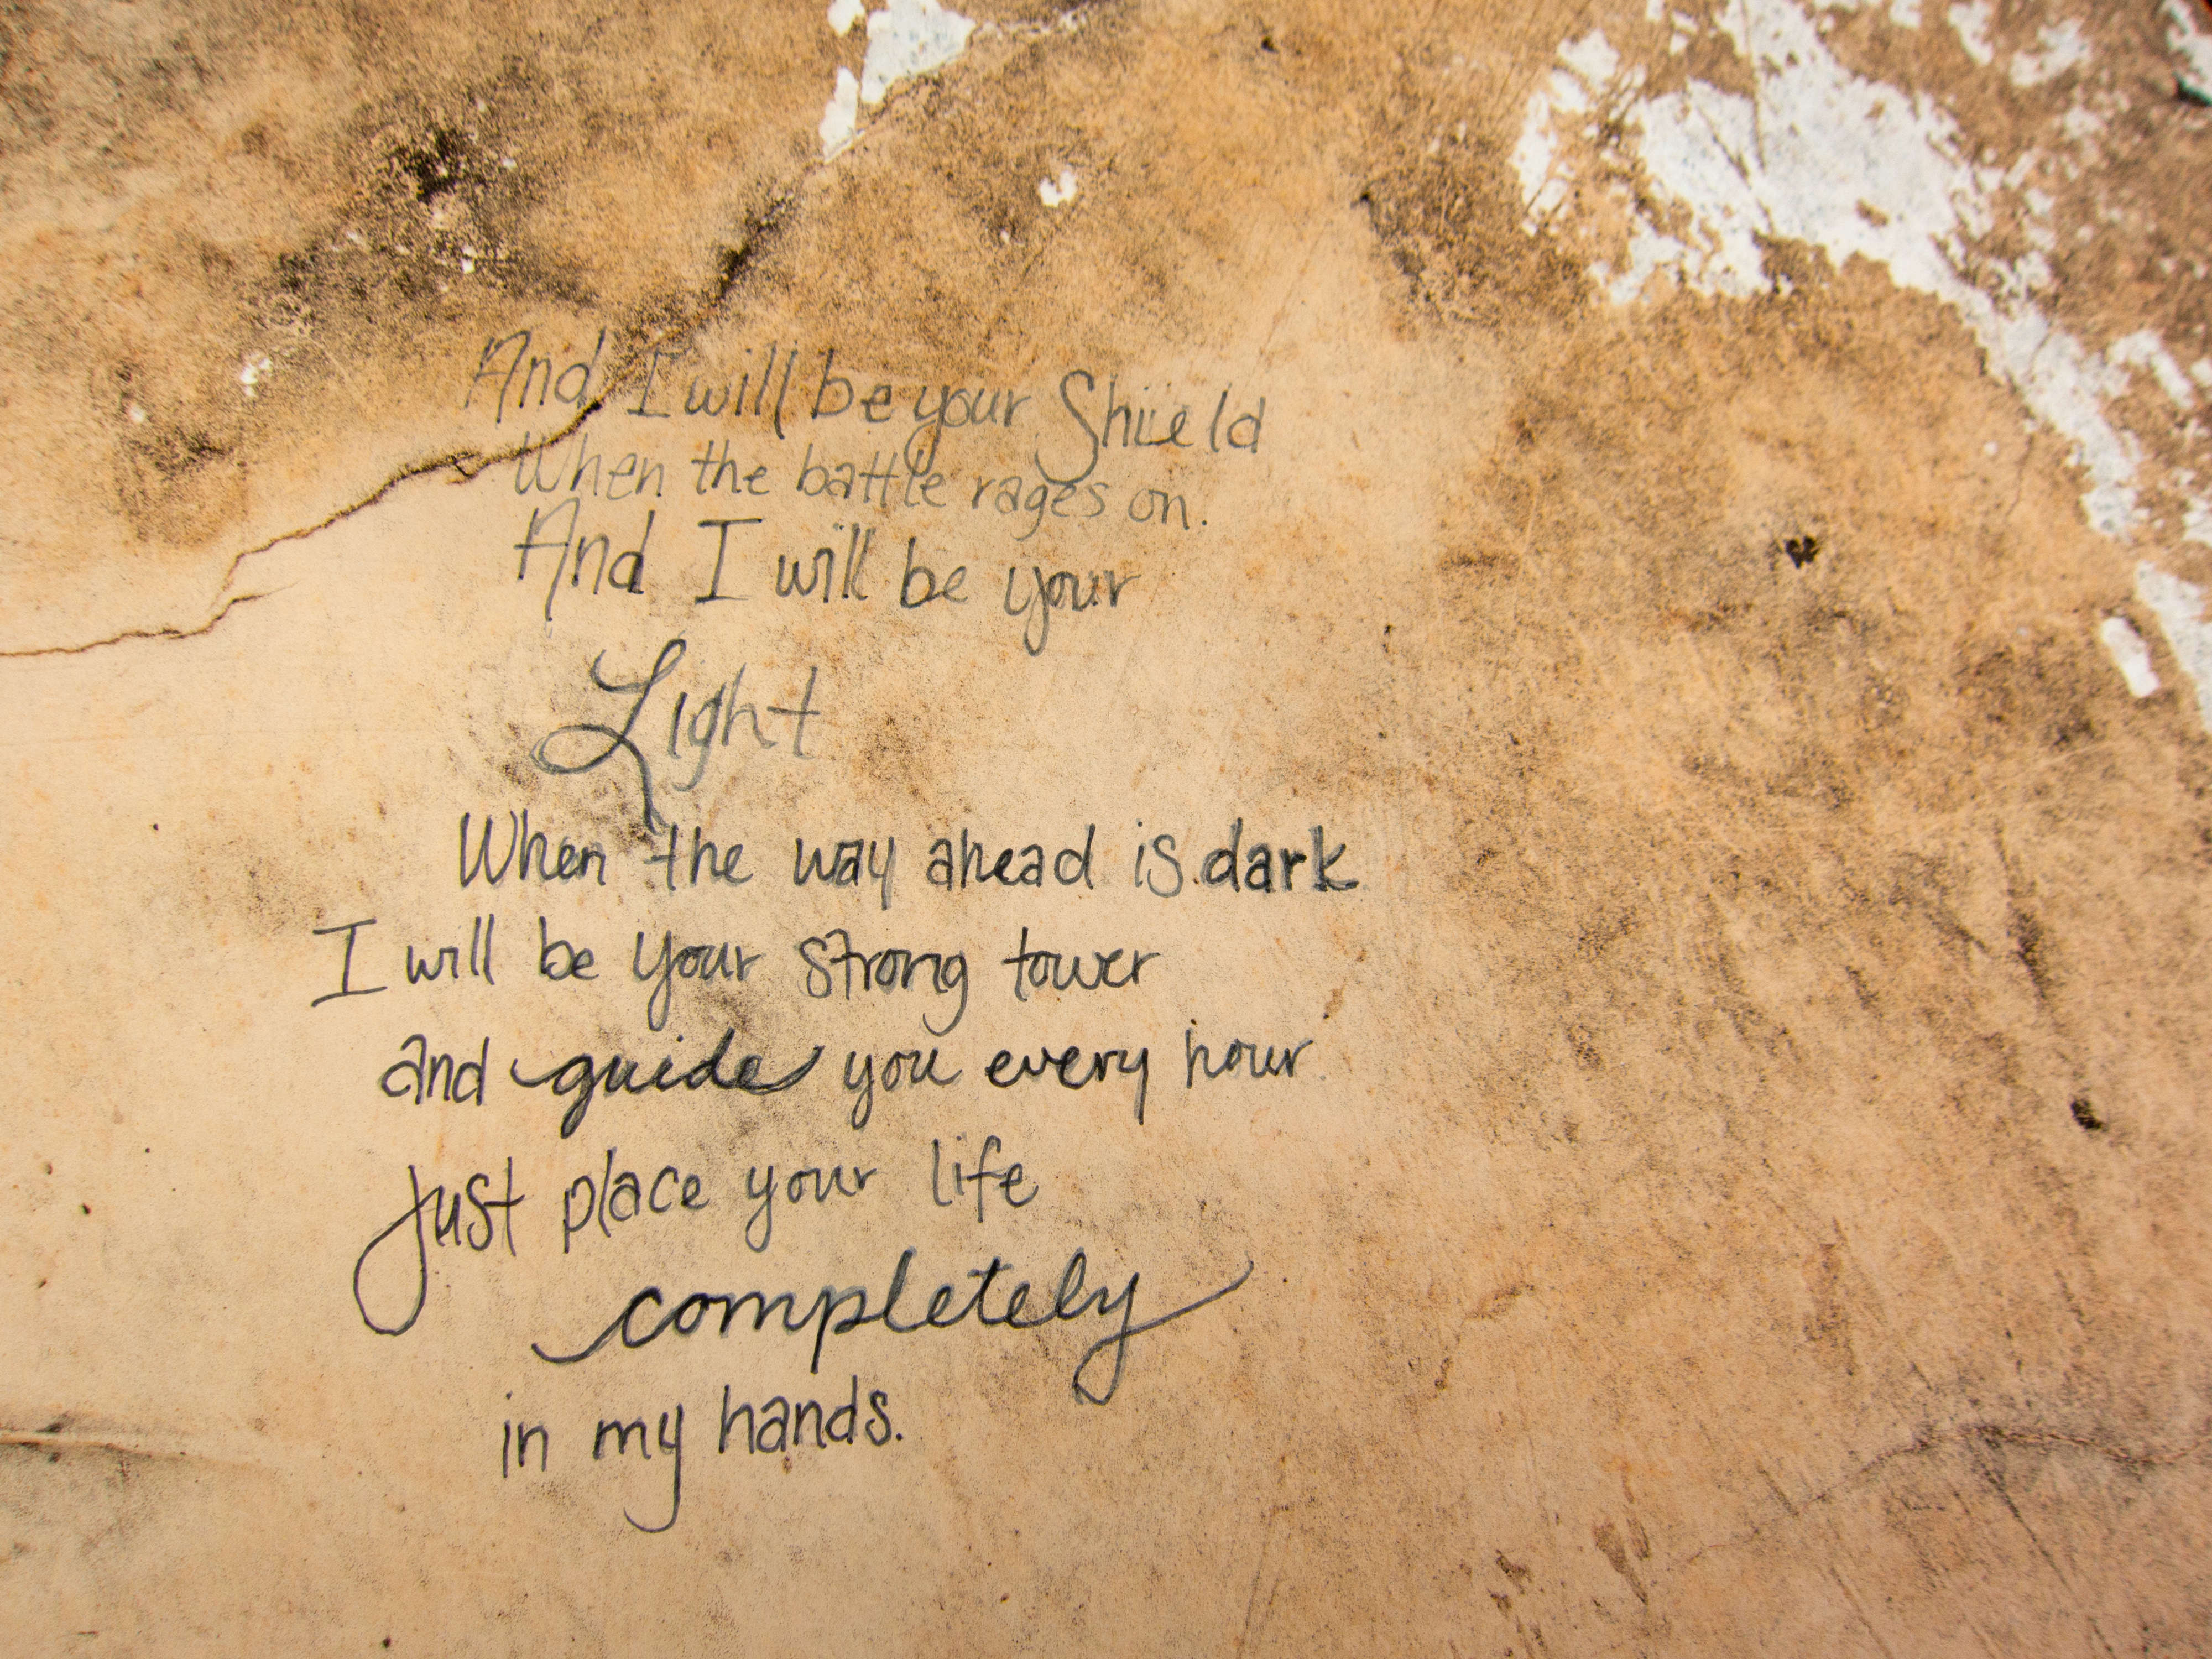 And I will be your Shield
When the battle rages on.
And I will be your
Light
When the way ahead is dark
I will be your strong tower
and guide you every hour
Just place your life
completely
in my hands.